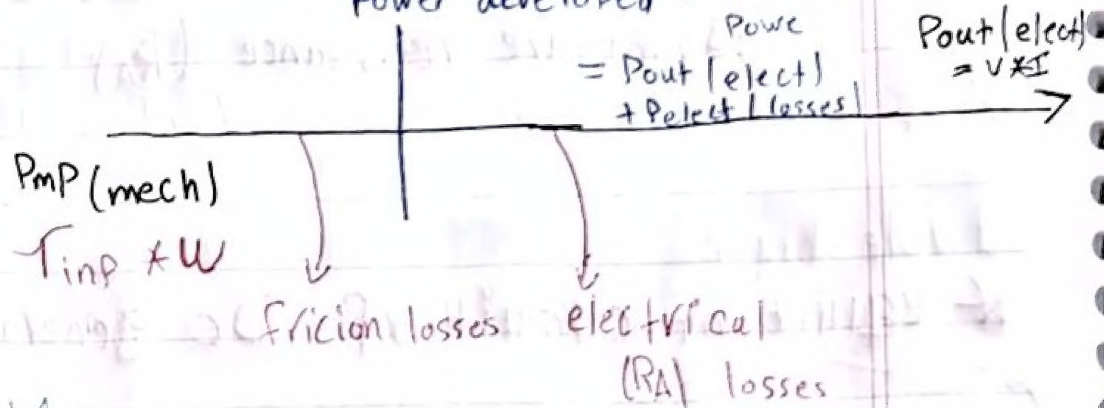 Power developed
Powe
= Pout (elect)
+ Pelect (losses)
Pout (elect)
= V*I
PmP (mech)
Tinp * W
fricion losses
electrical
(RA) losses